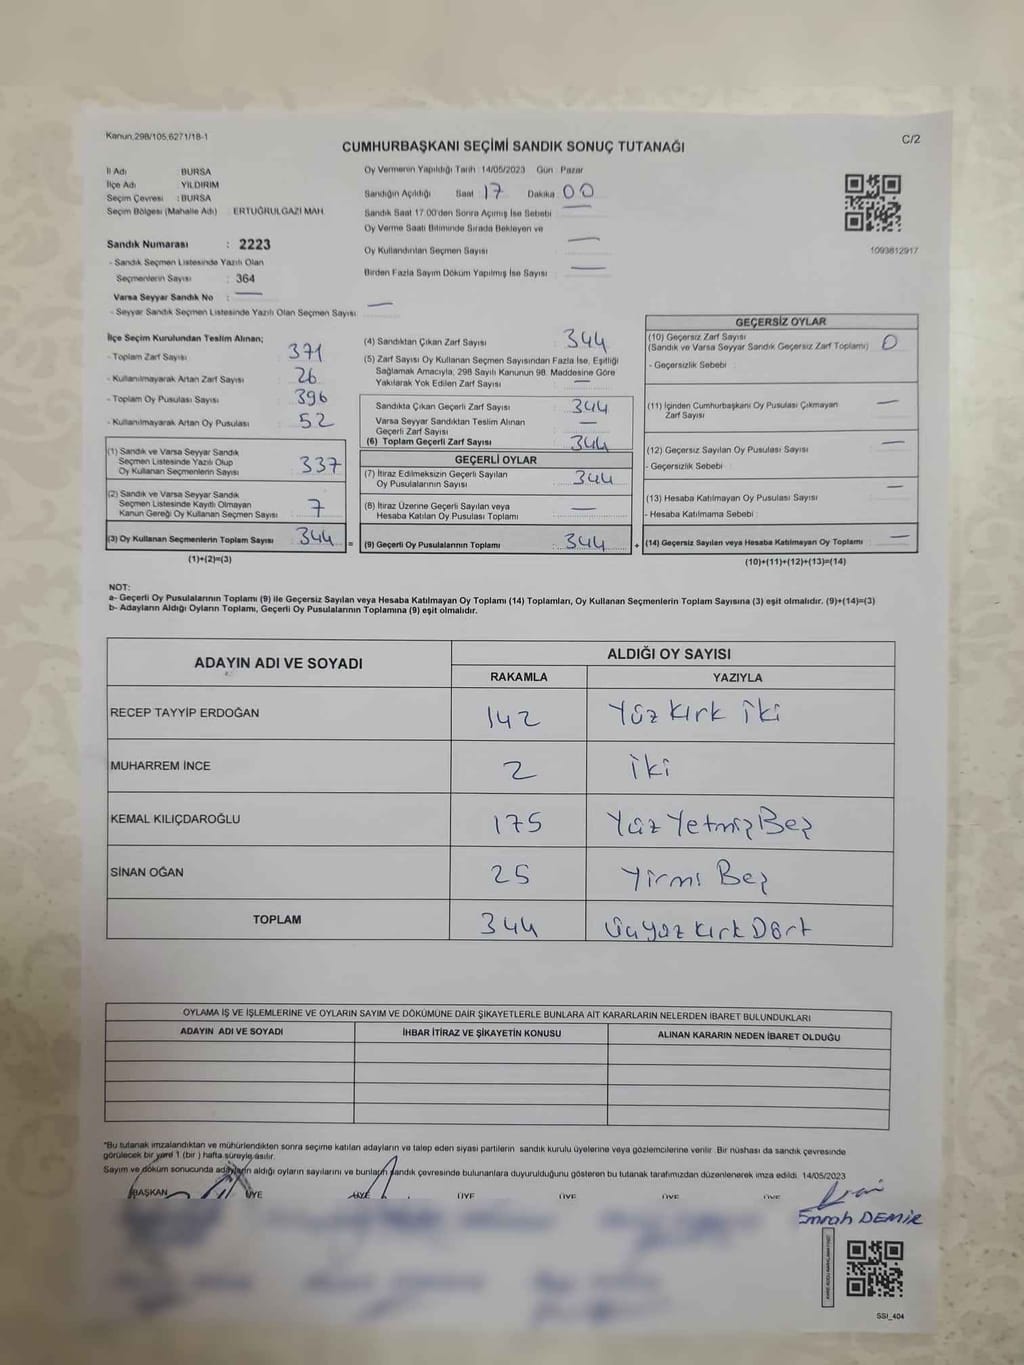 Kanun.298/105,6271/18-1
CUMHURBAŞKANI SEÇİMİ SANDIK SONUÇ TUTANAĞI
C/2
İl Adı BURSA
İlçe Adı YILDIRIM
Seçim Çevresi : BURSA
Seçim Bölgesi (Mahalle Adı) ERTUĞRULGAZİ MAH
Oy Vermenin Yapıldığı Tarih 14/05/2023 Gün Pazar
Sandığın Açıldığı Saat 17 Dakika 00
Sandık Saat 17.00'den Sonra Açılmış İse Sebebi
Oy Verme Saati Bitiminde Sırada Bekleyen ve
Oy Kullandırılan Seçmen Sayısı
Birden Fazla Sayım Döküm Yapılmış İse Sayısı
1093812917
Sandık Numarası : 2223
- Sandık Seçmen Listesinde Yazılı Olan
Seçmenlerin Sayısı : 364
Varsa Seyyar Sandık No :
- Seyyar Sandık Seçmen Listesinde Yazılı Olan Seçmen Sayısı
İlçe Seçim Kurulundan Teslim Alınan;
- Toplam Zarf Sayısı 371
- Kullanılmayarak Artan Zarf Sayısı 26
- Toplam Oy Pusulası Sayısı 396
- Kullanılmayarak Artan Oy Pusulası 52
(1) Sandık ve Varsa Seyyar Sandık
Seçmen Listesinde Yazılı Olup
Oy Kullanan Seçmenlerin Sayısı 337
(2) Sandık ve Varsa Seyyar Sandık
Seçmen Listesinde Kayıtlı Olmayan
Kanun Gereği Oy Kullanan Seçmen Sayısı 7
(3) Oy Kullanan Seçmenlerin Toplam Sayısı 344 =
(1)+(2)=(3)
(4) Sandıktan Çıkan Zarf Sayısı 344
(5) Zarf Sayısı Oy Kullanan Seçmen Sayısından Fazla İse, Eşitliği
Sağlamak Amacıyla, 298 Sayılı Kanunun 98. Maddesine Göre
Yakılarak Yok Edilen Zarf Sayısı
Sandıkta Çıkan Geçerli Zarf Sayısı 344
Varsa Seyyar Sandıktan Teslim Alınan
Geçerli Zarf Sayısı
(6) Toplam Geçerli Zarf Sayısı 344
GEÇERLİ OYLAR
(7) İtiraz Edilmeksizin Geçerli Sayılan
Oy Pusulalarının Sayısı 344
(8) İtiraz Üzerine Geçerli Sayılan veya
Hesaba Katılan Oy Pusulası Toplamı
(9) Geçerli Oy Pusulalarının Toplamı 344 +
GEÇERSİZ OYLAR
(10) Geçersiz Zarf Sayısı
(Sandık ve Varsa Seyyar Sandık Geçersiz Zarf Toplamı) 0
- Geçersizlik Sebebi
(11) İçinden Cumhurbaşkanı Oy Pusulası Çıkmayan
Zarf Sayısı
(12) Geçersiz Sayılan Oy Pusulası Sayısı
- Geçersizlik Sebebi
(13) Hesaba Katılmayan Oy Pusulası Sayısı
- Hesaba Katılmama Sebebi
(14) Geçersiz Sayılan veya Hesaba Katılmayan Oy Toplamı
(10)+(11)+(12)+(13)=(14)
NOT:
a- Geçerli Oy Pusulalarının Toplamı (9) ile Geçersiz Sayılan veya Hesaba Katılmayan Oy Toplamı (14) Toplamları, Oy Kullanan Seçmenlerin Toplam Sayısına (3) eşit olmalıdır. (9)+(14)=(3)
b- Adayların Aldığı Oyların Toplamı, Geçerli Oy Pusulalarının Toplamına (9) eşit olmalıdır.
ADAYIN ADI VE SOYADI ALDIĞI OY SAYISI
RAKAMLA YAZIYLA
RECEP TAYYİP ERDOĞAN 142 Yüz Kırk iki
MUHARREM İNCE 2 iki
KEMAL KILIÇDAROĞLU 175 Yüz Yetmiş Beş
SİNAN OĞAN 25 Yirmi Beş
TOPLAM 344 Üçyüz Kırk Dört
OYLAMA İŞ VE İŞLEMLERİNE VE OYLARIN SAYIM VE DÖKÜMÜNE DAİR ŞİKAYETLERLE BUNLARA AİT KARARLARIN NELERDEN İBARET BULUNDUKLARI
ADAYIN ADI VE SOYADI İHBAR İTİRAZ VE ŞİKAYETİN KONUSU ALINAN KARARIN NEDEN İBARET OLDUĞU
*Bu tutanak imzalandıktan ve mühürlendikten sonra seçime katılan adayların ve talep eden siyasi partilerin sandık kurulu üyelerine veya gözlemcilerine verilir. Bir nüshası da sandık çevresinde
görülecek bir yere 1 (bir ) hafta süreyle asılır.
Sayım ve döküm sonucunda adayların aldığı oyların sayılarını ve bunların sandık çevresinde bulunanlara duyurulduğunu gösteren bu tutanak tarafımızdan düzenlenerek imza edildi. 14/05/2023
BAŞKAN ÜYE ÜYE ÜYE ÜYE ÜYE ÜYE
Emrah DEMİR
SSI_404